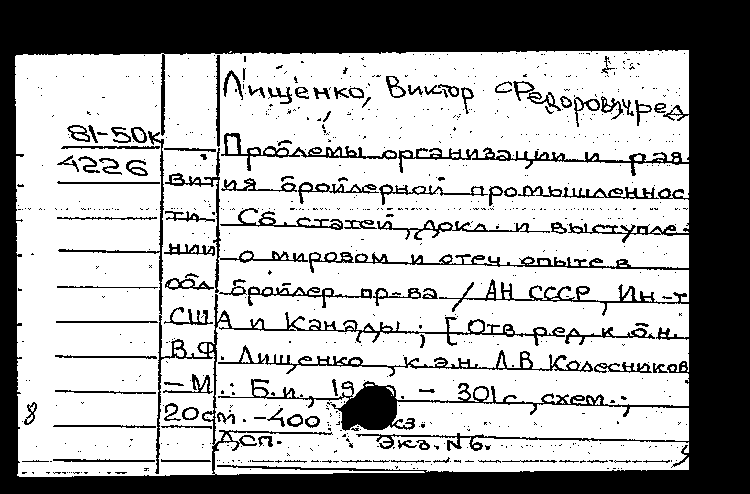 Лищенко, Виктор Федорович, ред
81-50к
4226
Проблемы организации и раз-
вития бройлерной промышленнос-
ти: Сб. статей, докл. и выступле-
ний о мировом и отеч. опыте в
обл бройлер пр-ва / АН СССР, Ин-т
США и Канады; [Отв. ред. к.э.н.
В.Ф. Лищенко, к.э.н. Л.В Колесников
– М.: Б.и., – 301с, схем.;
20см. –400 кз.
8
Дсп. Экз. N6.